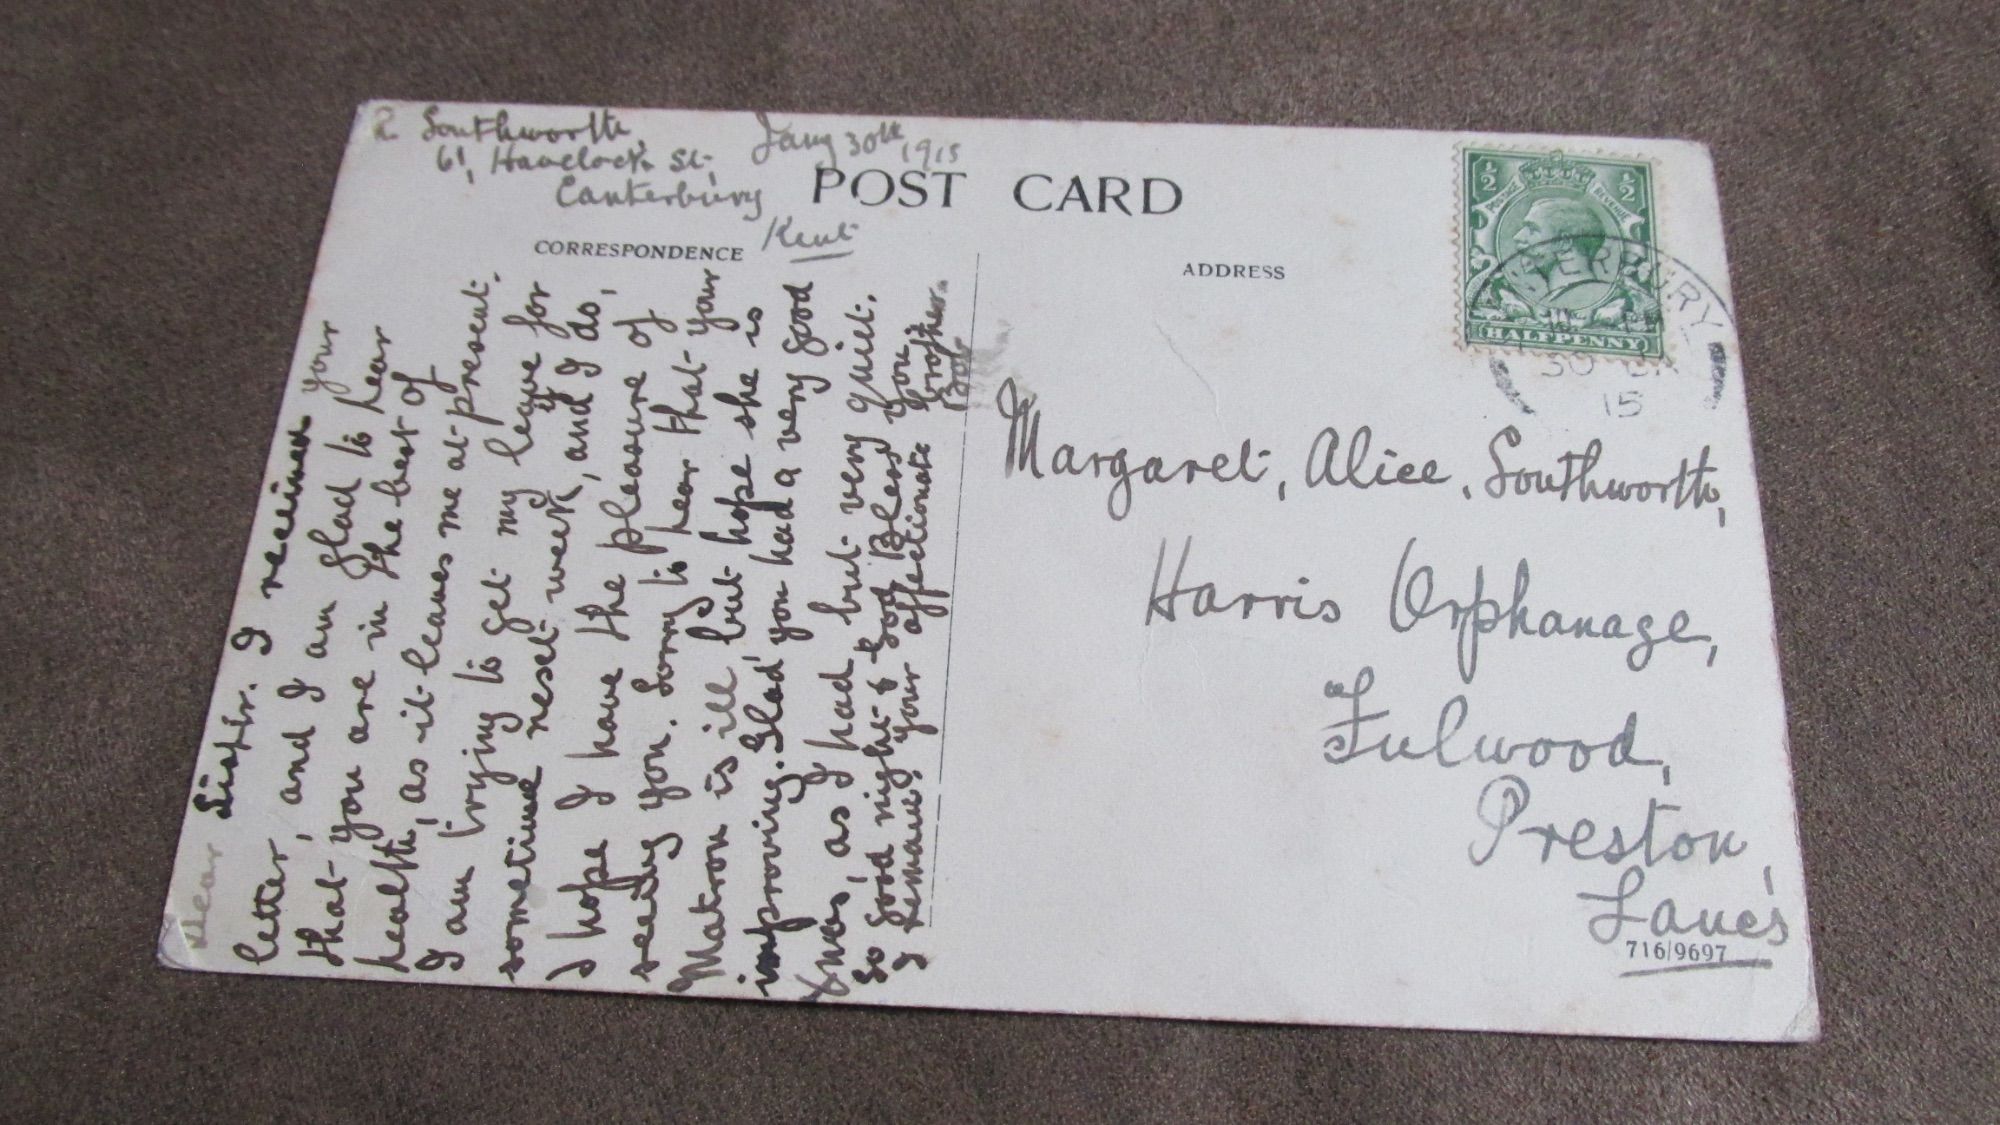 R Southworth,
61, Havelock St,
Canterbury
Kent
Jany 30th, 1915
POST CARD
CORRESPONDENCE
ADDRESS
Dear Sister. I received your
letter, and I am glad to hear
that you are in the best of
health, as it leaves me at present.
I am trying to get my leave for
sometime next week, and if I do,
I hope I have the pleasure of
seeing you. Sorry to hear that your
Matron is ill, but hope she is
improving. Glad you had a very good
Xmas, as I had but very quiet.
So Good night & God Bless you,
I remain, your affectionate brother.
Bob
½ ½
POSTAGE REVENUE
HALFPENNY
TERBURY
30
15
Margaret, Alice, Southworth,
Harris Orphanage,
Fulwood,
Preston,
Lancs
716/9697